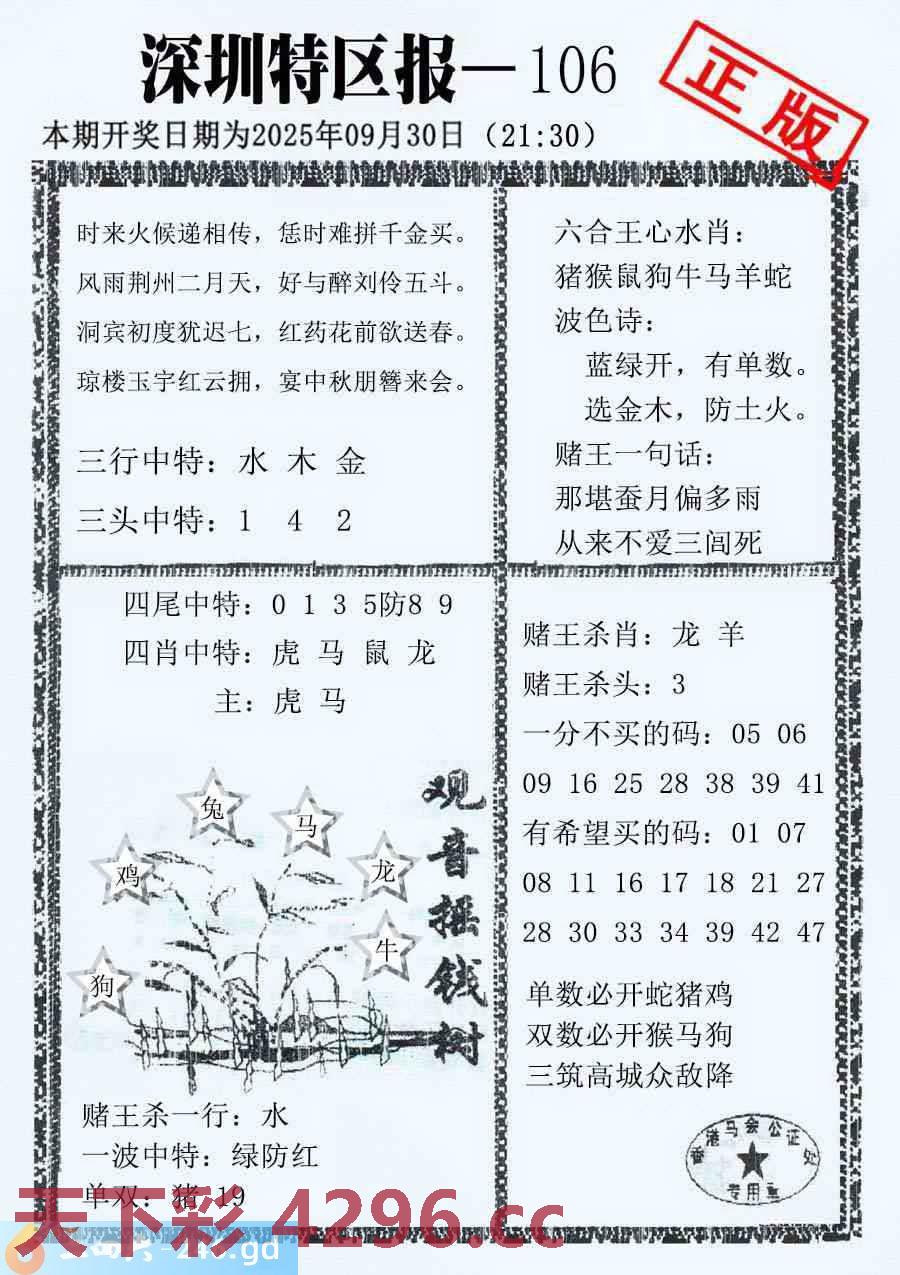 深圳特区报—106
正版
本期开奖日期为2025年09月30日（21:30）
时来火候递相传，恁时难拼千金买。
风雨荆州二月天，好与醉刘伶五斗。
洞宾初度犹迟七，红药花前欲送春。
琼楼玉宇红云拥，宴中秋朋簪来会。
三行中特：水 木 金
三头中特：1 4 2
六合王心水肖：
猪猴鼠狗牛马羊蛇
波色诗：
蓝绿开，有单数。
选金木，防土火。
赌王一句话：
那堪蚕月偏多雨
从来不爱三闾死
四尾中特：0 1 3 5防8 9
四肖中特：虎 马 鼠 龙
主：虎 马
兔
马
鸡
龙
牛
狗
观音摇钱树
赌王杀一行：水
一波中特：绿防红
单双：猪 19
赌王杀肖：龙 羊
赌王杀头：3
一分不买的码：05 06
09 16 25 28 38 39 41
有希望买的码：01 07
08 11 16 17 18 21 27
28 30 33 34 39 42 47
单数必开蛇猪鸡
双数必开猴马狗
三筑高城众敌降
香港马会公证处
专用章
天下彩 4296.cc